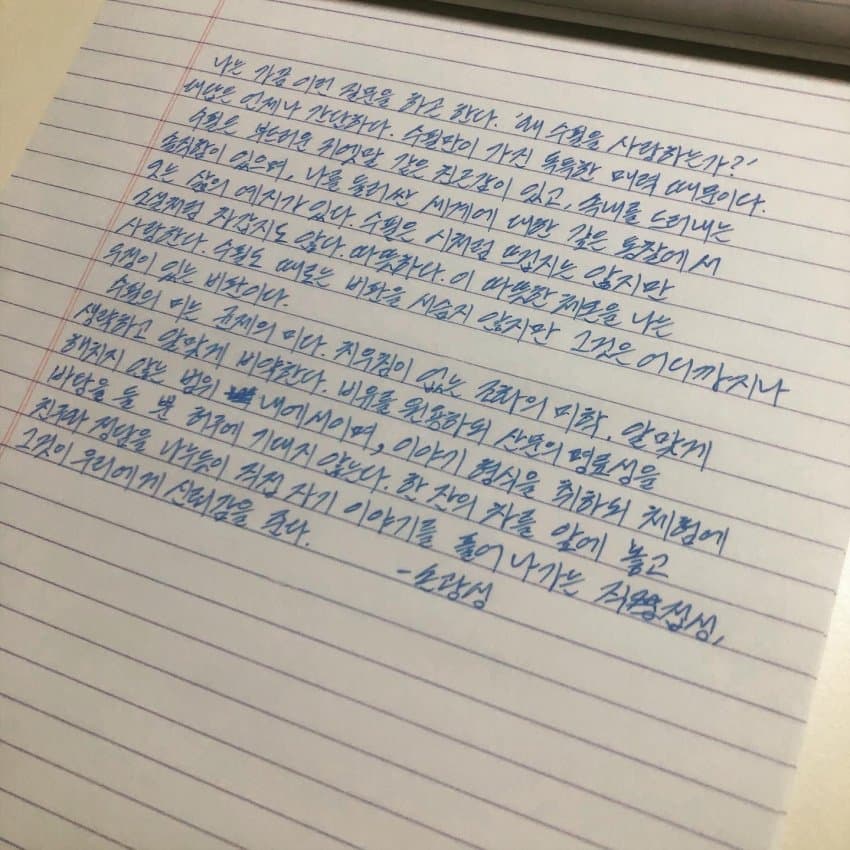 나는 가끔 이런 질문을 하곤 한다. '왜 수필을 사랑하는가?'
해답은 언제나 간단하다. 수필만이 가진 독특한 매력 때문이다.
수필은 부드러운 귀엣말 같은 친근감이 있고, 속내를 드러내는
솔직함이 있으며, 나를 둘러싼 세계에 대한 깊은 통찰에서
오는 삶의 예지가 있다. 수필은 시처럼 뜨겁지는 않지만
소설처럼 차갑지도 않다. 따뜻하다. 이 따뜻한 체온을 나는
사랑한다. 수필도 때로는 비판을 서슴지 않지만 그것은 어디까지나
우정이 있는 비판이다.
수필의 미는 균제의 미다. 치우침이 없는 조화의 미학. 알맞게
생략하고 알맞게 비약한다. 비유를 원용하되 산문의 명료성을
해치지 않는 범위 내에서이며, 이야기 형식을 취하되 체험에
바탕을 둘 뿐 허구에 기대지 않는다. 한 잔의 차를 앞에 놓고
친구와 정담을 나누듯이 직접 자기 이야기를 풀어 나가는 직접성,
그것이 우리에게 신뢰감을 준다.
- 손광성